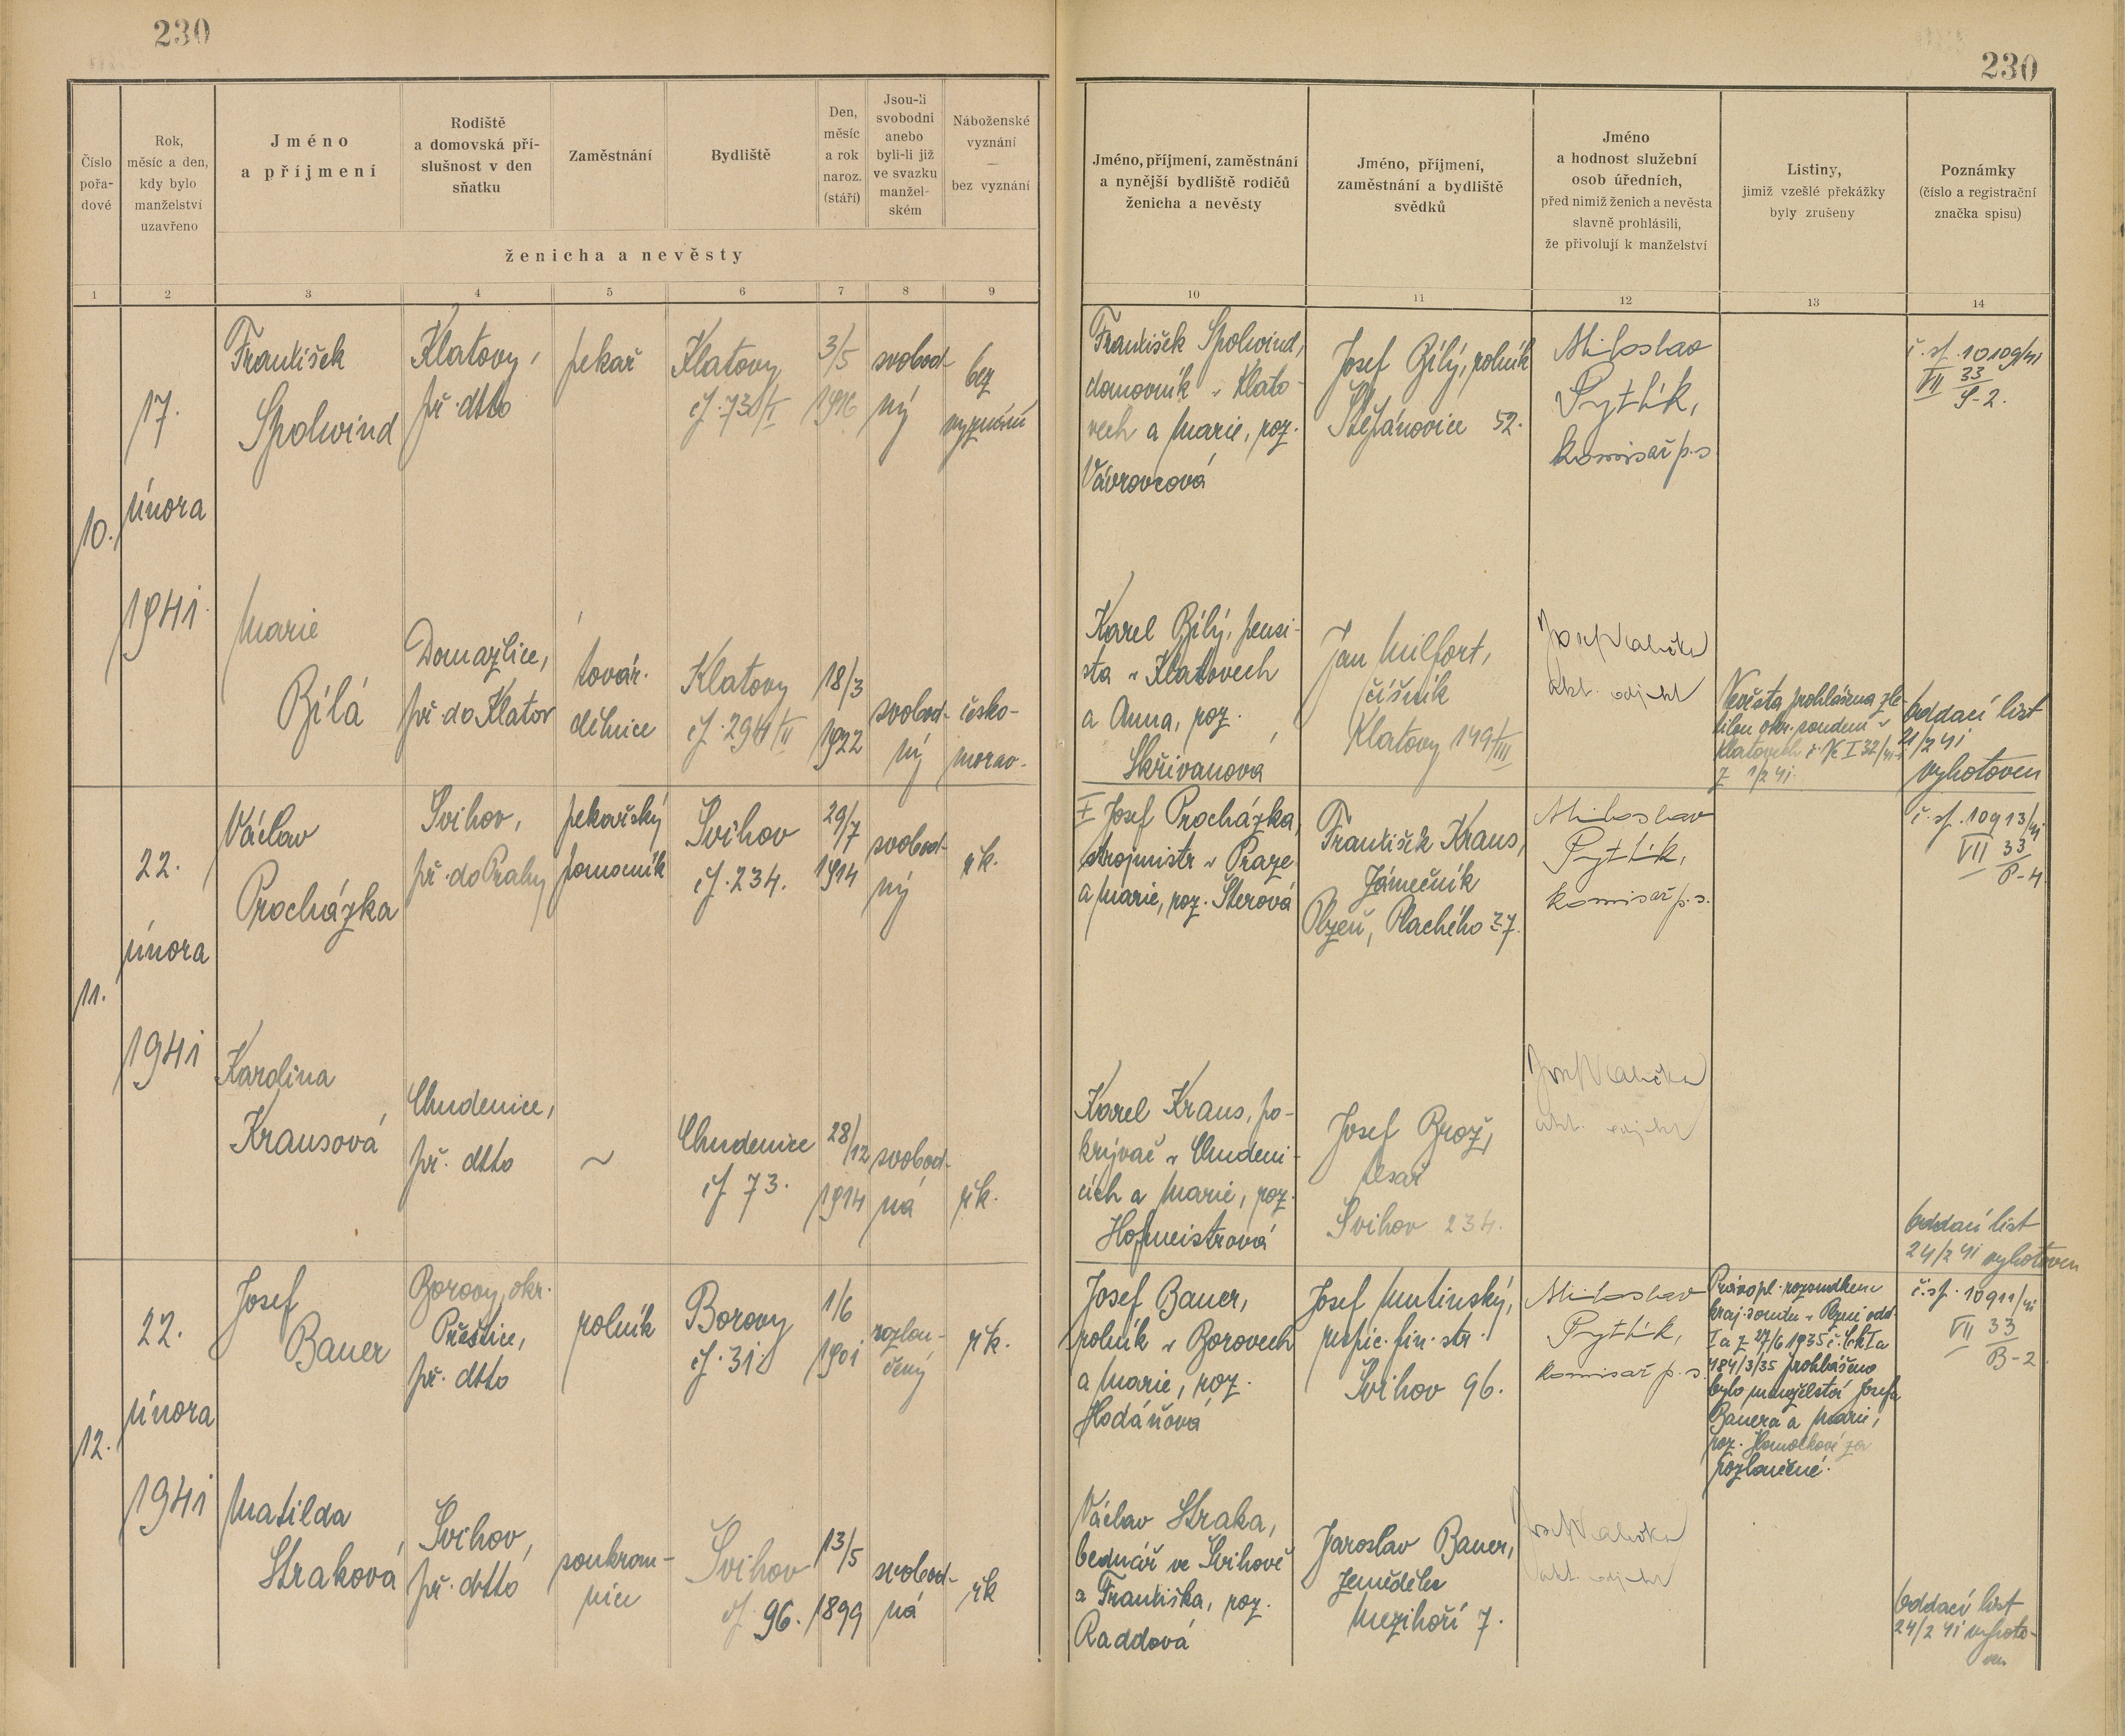 230
230
Číslo
pořa-
dové
Rok,
měsíc a den,
kdy bylo
manželství
uzavřeno
Jméno
a příjmení
Rodiště
a domovská pří-
slušnost v den
sňatku
Zaměstnání
Bydliště
Den,
měsíc
a rok
naroz.
(stáří)
Jsou-li
svobodni
anebo
byli-li již
ve svazku
manžel-
ském
Náboženské
vyznání
—
bez vyznání
ženicha a nevěsty
Jméno, příjmení, zaměstnání
a nynější bydliště rodičů
ženicha a nevěsty
Jméno, příjmení,
zaměstnání a bydliště
svědků
Jméno
a hodnost služební
osob úředních,
před nimiž ženich a nevěsta
slavně prohlásili,
že přivolují k manželství
Listiny,
jimiž vzešlé překážky
byly zrušeny
Poznámky
(číslo a registrační
značka spisu)
1 2 3 4 5 6 7 8 9 10 11 12 13 14
10.
17.
února
1941
František
Spolwind
Klatovy,
př. dtto
pekař
Klatovy
čp. 730/I
3/5
1916
svobod-
ný
bez
vyznání
František Spolwind,
domovník v Klato-
vech a Marie, roz.
Vávrovcová
Josef Bílý, rolník
Štěpánovice 52.
Miloslav
Pytlík,
komisař p. s.
č. sp. 10109/41
VII 33
S-2.
Marie
Bílá
Domažlice,
př. do Klatov
továr.
dělnice
Klatovy
čp. 294/II
18/3
1922
svobod-
ný
česko-
morav.
Karel Bílý, pensi-
sta v Klatovech
a Anna, roz.
Skřivanová
Jan Milfort,
číšník
Klatovy 149/III
Nevěsta prohlášena zle-
tilou okr. soudem v
Klatovech č. Nc I 32/41
z 1/2 41.
Oddací list
21/2 41
vyhotoven
11.
22.
února
1941
Václav
Procházka
Švihov,
př. do Prahy
pekařský
pomocník
Švihov
čp. 234.
29/7
1914
svobod-
ný
řk.
Josef Procházka,
strojmistr v Praze
a Marie, roz. Šterová
František Kraus,
zámečník
Plzeň, Plachého 27.
Miloslav
Pytlík,
komisař p. s.
č. sp. 10913/41
VII 33
P-4
Karolina
Krausová
Chudenice,
př. dtto
~
Chudenice
čp 73.
28/12
1914
svobod-
ná
řk.
Karel Kraus, po-
krývač v Chudeni-
cích a Marie, roz.
Hofmeistrová
Josef Brož,
tesař
Švihov 234.
Oddací list
24/2 41 vyhotoven
12.
22.
února
1941
Josef
Bauer
Borovy, okr.
Přeštice,
př. dtto
rolník
Borovy
čp. 31.
1/6
1901
rozlou-
čený
řk.
Josef Bauer,
rolník v Borovech
a Marie, roz.
Hodáňová
Josef Mutinský,
respic. fin. str.
Švihov 96.
Miloslav
Pytlík,
komisař p. s.
Právopl. rozsudkem
kraj. soudu v Plzni odd.
I a z 27/6 1935 č. Ck I a
484/3/35 prohlášeno
bylo manželství Josefa
Bauera a Marie,
roz. za
rozloučené.
č. sp. 10911/41
VII 33
B-2.
Matilda
Straková
Švihov,
př. dtto
soukrom-
nice
Švihov
čp 96.
13/5
1899
svobod-
ná
řk
Václav Straka,
bednář ve Švihově
a Františka, roz.
Raddová
Jaroslav Bauer,
zemědělec
Mezihoří 7.
Oddací list
24/2 41 vyhoto-
ven